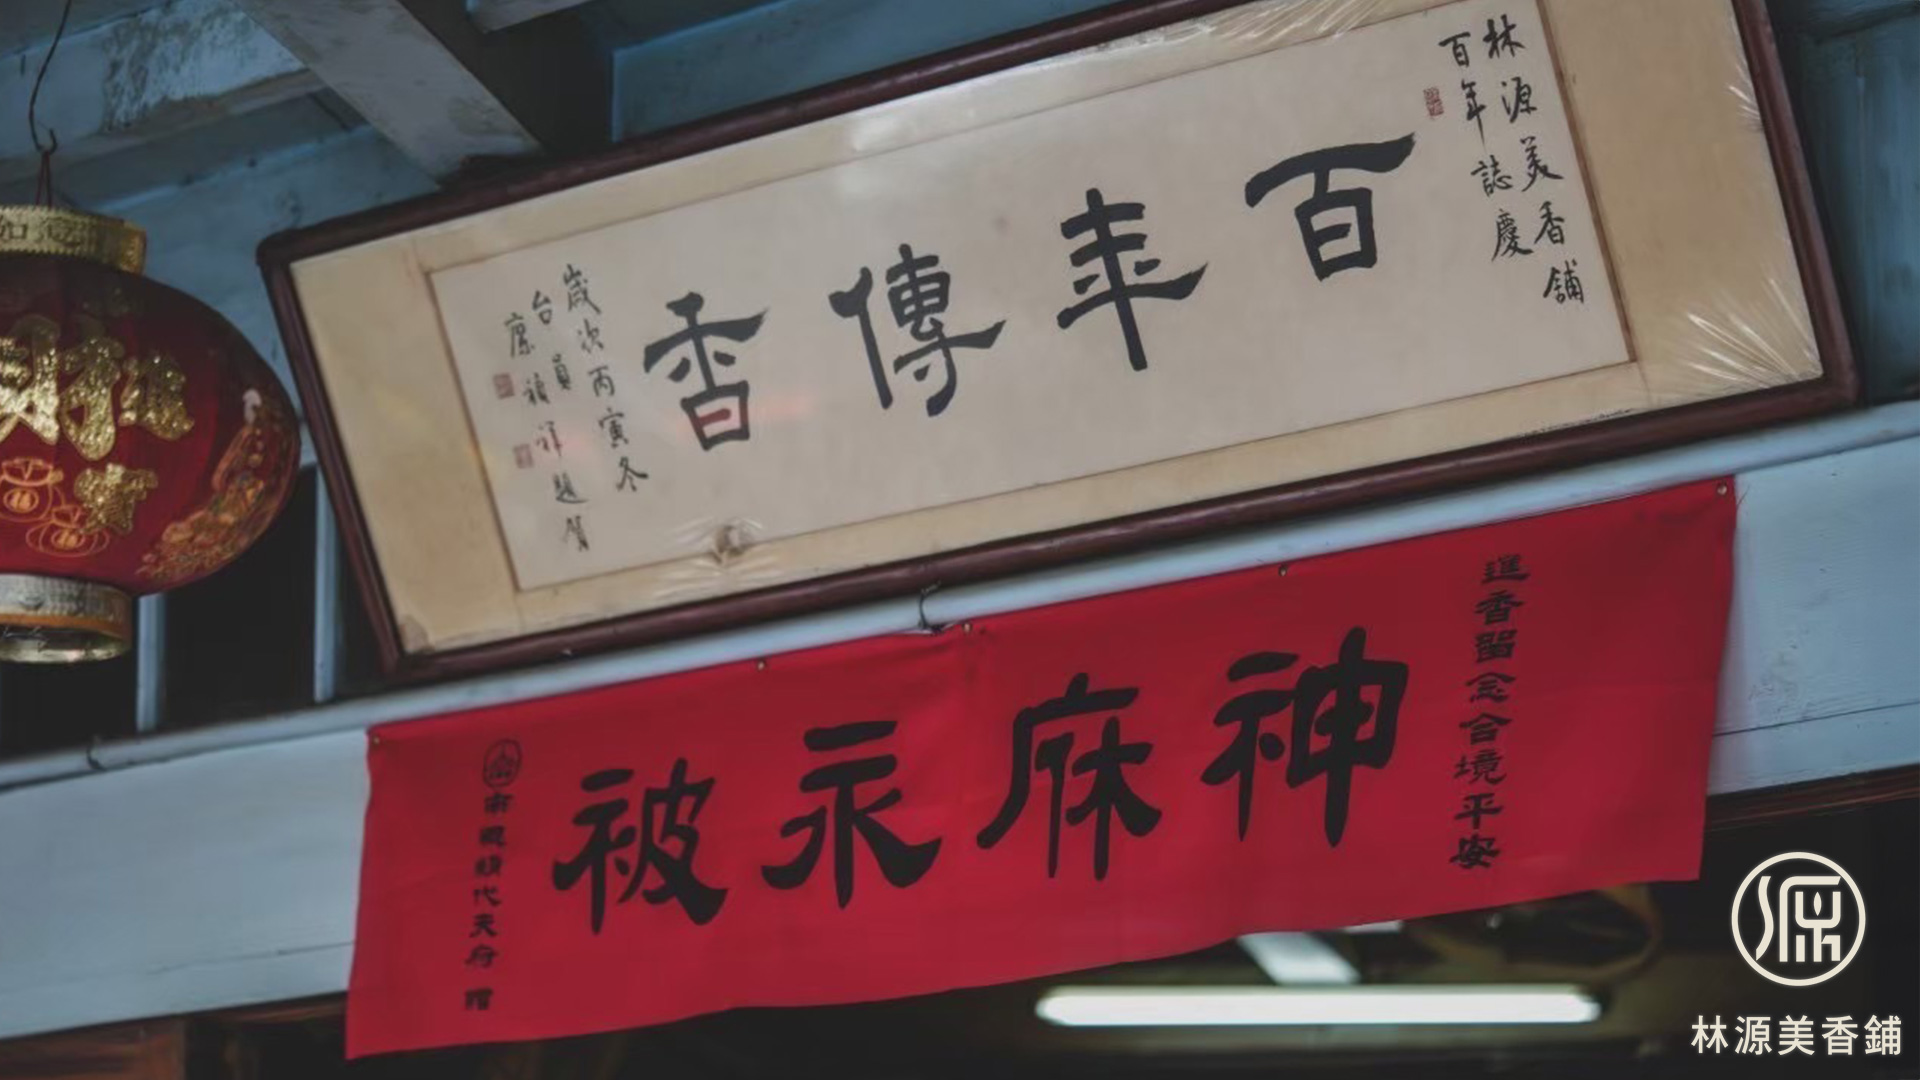 林源美香舖
百年誌慶
百年傳香
歲次丙寅冬
台員
題賀
進香留念合境平安
神庥永被
代天府 贈
源
林源美香鋪